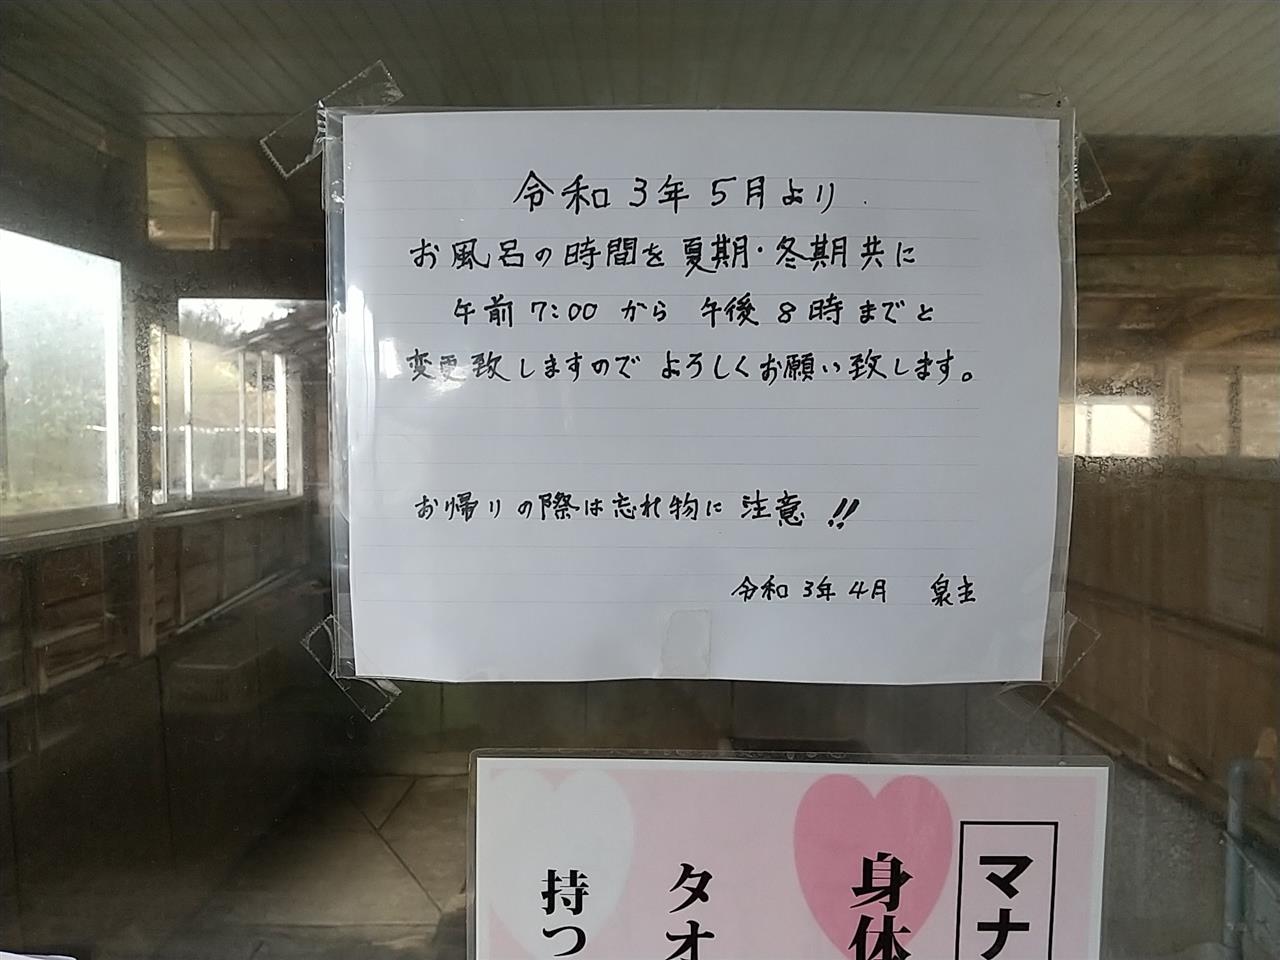 令和3年5月より
お風呂の時間を夏期・冬期共に
午前7:00から午後8時までと
変更致しますのでよろしくお願い致します。
お帰りの際は忘れ物に注意!!
令和3年4月 泉主
マナ
身体
タオ
持つ